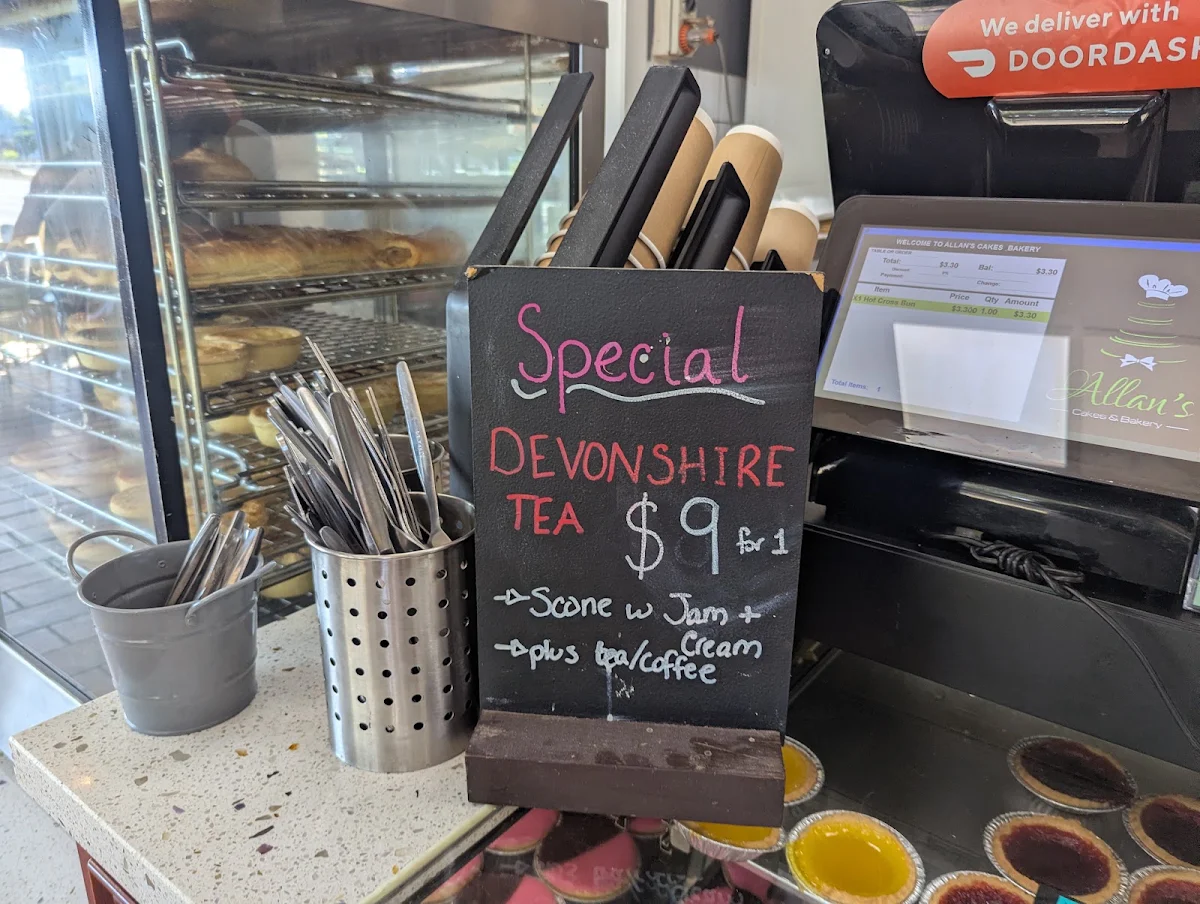 We deliver with
DOORDASH
WELCOME TO ALLAN'S CAKES_BAKERY
Total: $3.30 Bal: $3.30
Change:
Item Price Qty Amount
Hot Cross Bun $3.300 1.00 $3.30
Total Items: 1
Allan's
Cakes & Bakery
Special
DEVONSHIRE
TEA $9 for 1
→Scone w Jam +
Cream
→plus tea/coffee